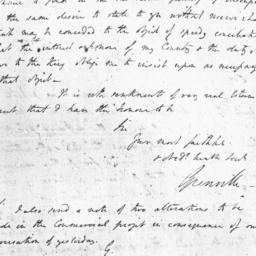 the same desire to state to you without reserve
may be conceded to the object of speedy
that the interest & honour of my Country & the duty
to the King oblige me to insist upon as necessary
that object.
It is with sentiments of very real esteem
that I have the honour to be
Sir
Your most faithful
& Obedt humble Servt
Grenville
I also send a note of two alterations to be
in the Commercial project in consequence of our
conversation of yesterday.
G.